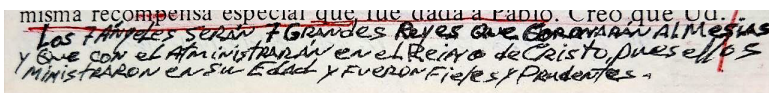 misma recompensa especial que fue dada a Pablo. Creo que Ud.
Los 7 Angeles SERAN 7 GRANDES Reyes QUE CORONARAN Al Mesias
y QUE CON el ADMINISTRARAN en el Reino de Cristo, pues ellos
MINISTRARON en su Edad y FUERON Fieles y Prudentes.